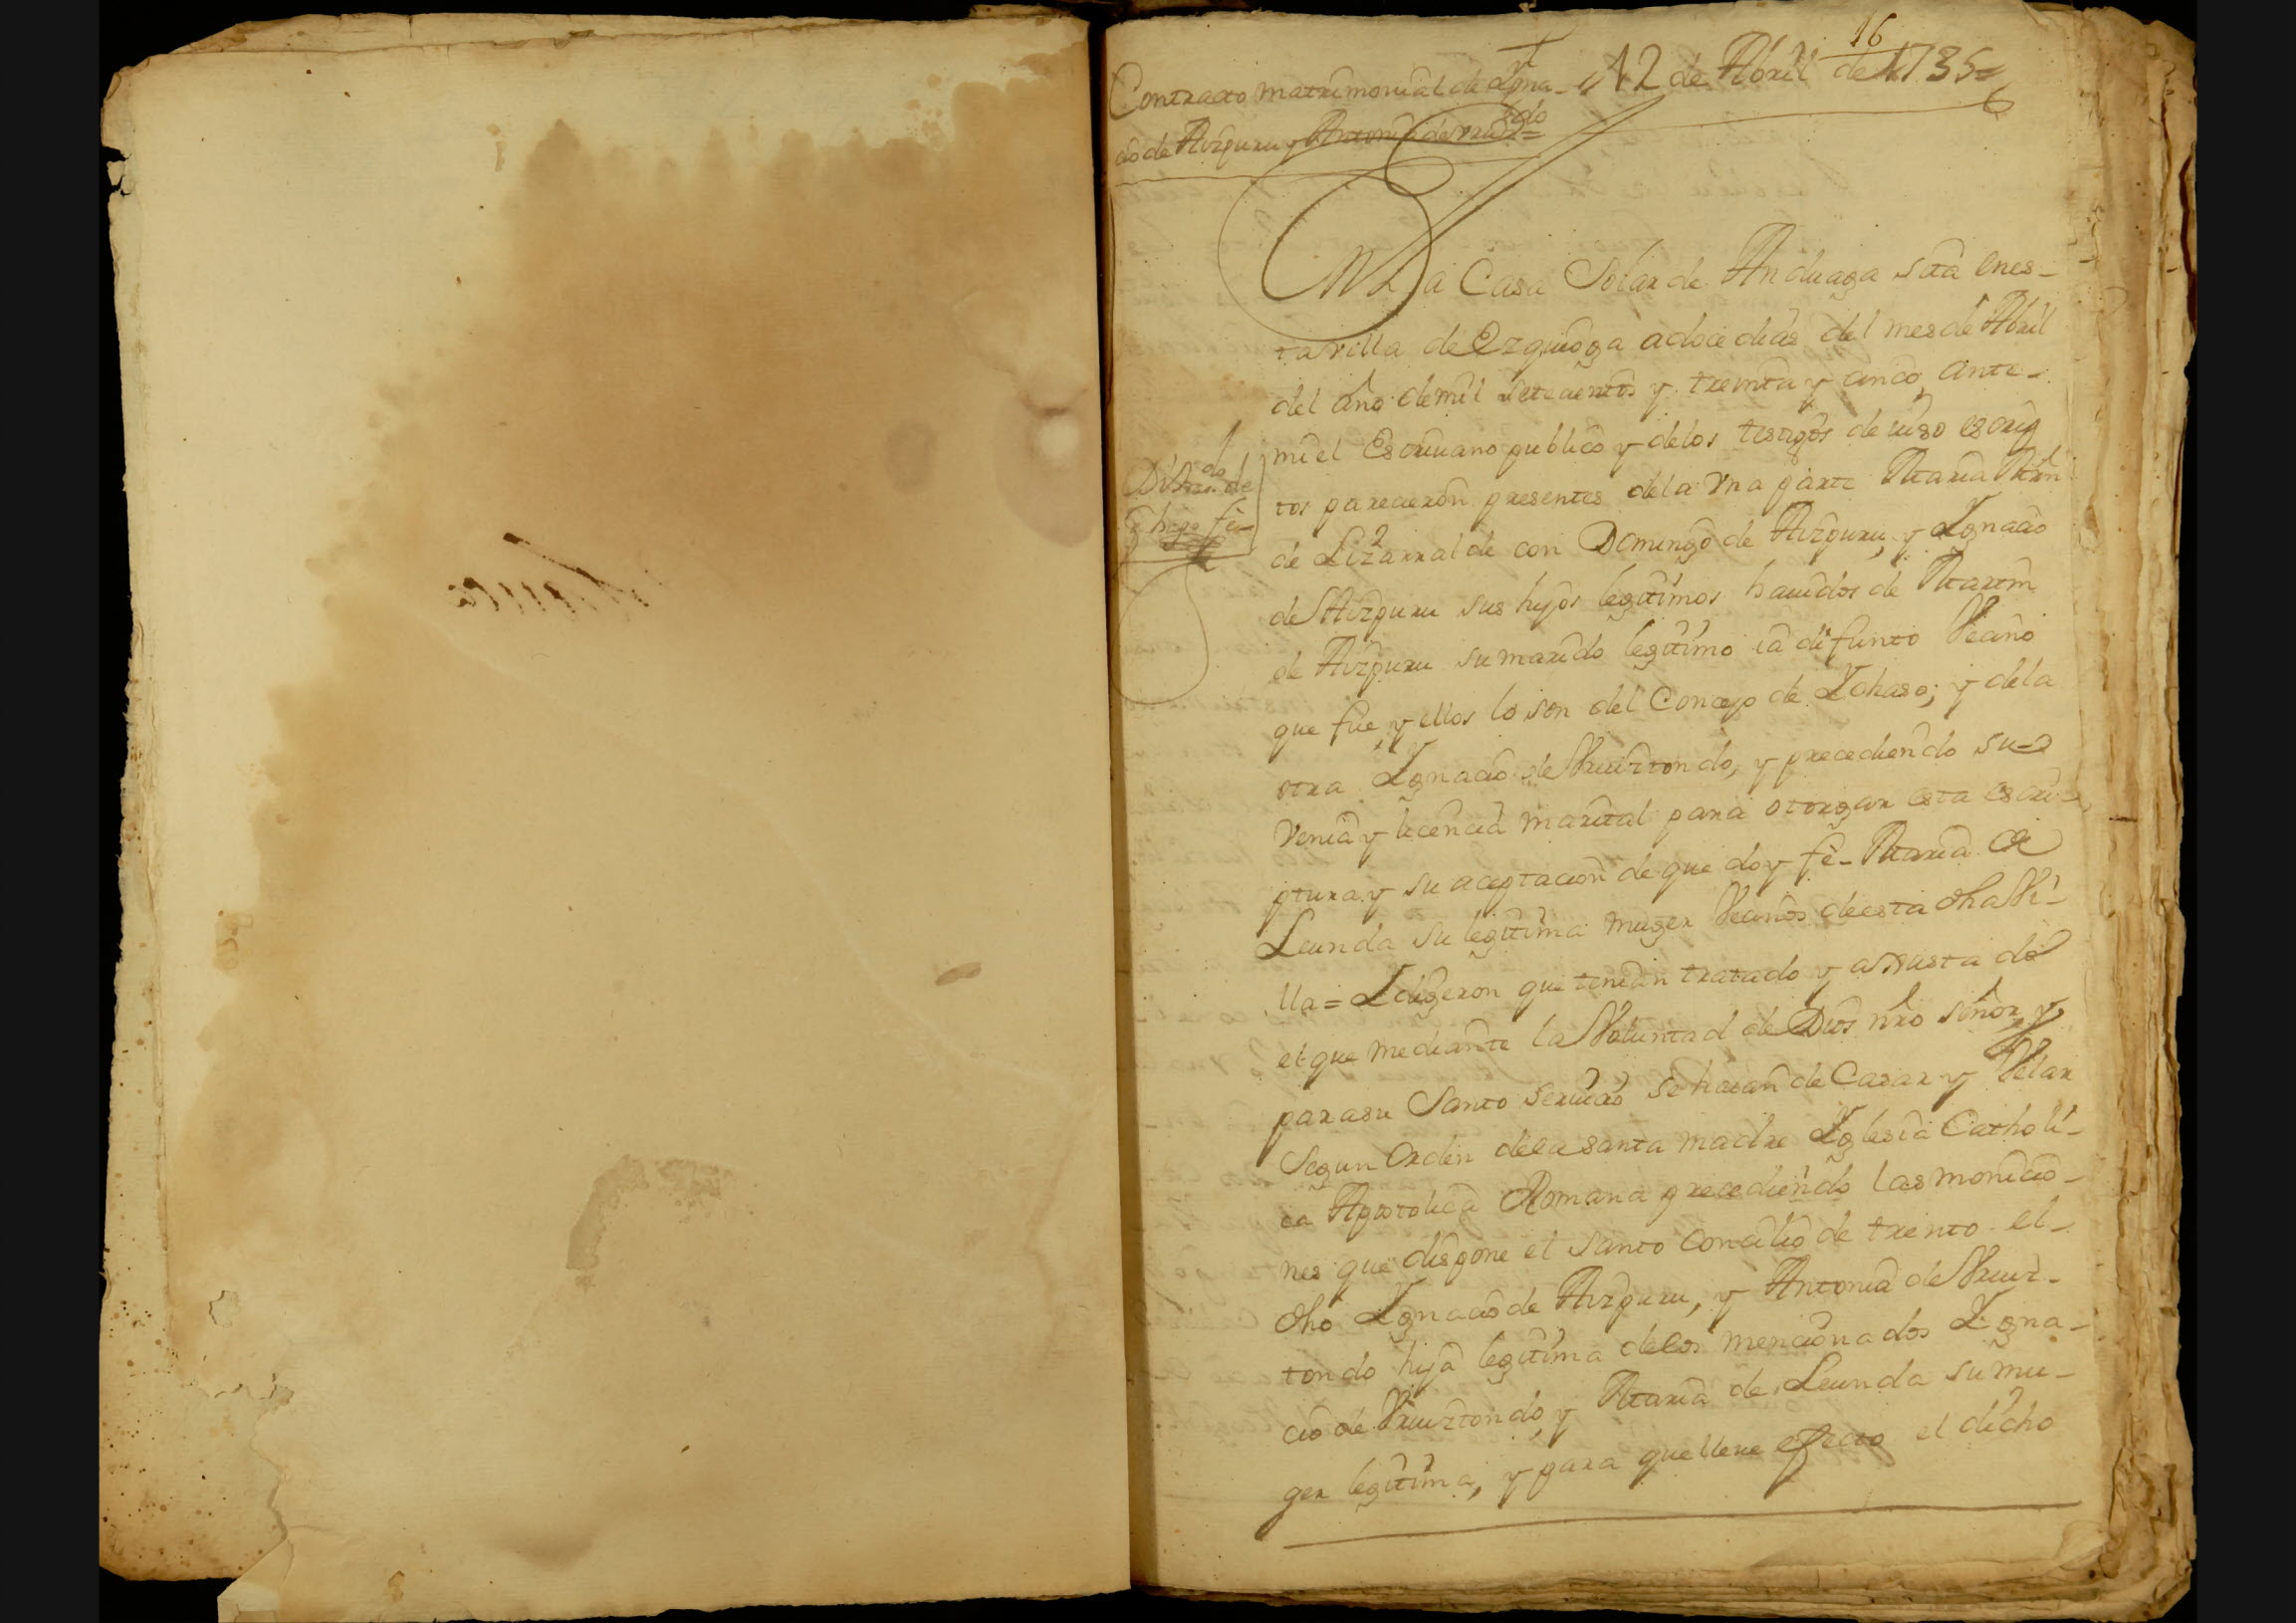 16
12 de Abril de 1735=
Contracto matrimonial de Ygna-
cio de Aizpuru y Antonia de Vruiztdo=
En La Casa Solar de Anduaga sita enes-
ta villa de Ezquioga adoce dias del mes de Abril
del año demil setecientos y treinta y cinco, ante-
mi el Escriuano publico y delos testigos de iuso escrip
tos parecieron presentes dela vna parte Maria Mrn
de Lizarralde con Domingo de Aizpuru, y Ygnacio
de Aizpuru sus hijos legitimos hauidos de Martin
de Aizpuru su marido legitimo ia difunto Vecino
que fue, y ellos lo son del Concejo de Ychaso; y dela
otra Ygnacio de Vruiztondo, y precediendo su
venia y licencia marital para otorgar esta escri-
ptura y su aceptacion de que doy fe- Maria de
Leunda su legitima muger Vecinos deesta dha Vi-
lla= Y digeron que tenian tratado y ajustado
el que mediante la Voluntad de Dios nro señor, y
para su Santo seruicio se haian de Casar y Velar
Segun Orden dela santa madre Yglesia Catholi-
ca Apostolica Romana precediendo las monicio-
nes que dispone el santo concilio de trento el-
dho Ygnacio de Aizpuru, y Antonia de Vruiz-
tondo hija legitima delos mencionados Ygna-
cio de Vruiztondo, y Maria de Leunda su mu-
ger legitima, y para que lleue efecto el dicho